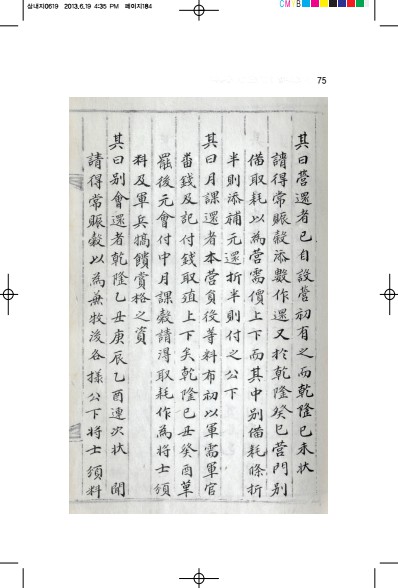 삼내지0619 2013.6.19 4:35 PM 페이지184
CM B
75
其曰營還者已自設營初有之而乾隆己未狀
請得常賑穀添數作還又於乾隆癸巳營門別
備取耗以為營需價上下而其中別備耗條折
半則添補元還折半則付之公下
其曰月課還者本營負後等料布初以軍需軍官
番錢及記付錢取殖上下矣乾隆己丑癸酉革
罷後元會付中月課穀請得取耗作為將士須
料及軍兵犒饋賞格之資
其曰別會還者乾隆乙丑庚辰乙酉連次狀 聞
請得常賑穀以為兼牧後各樣公下將士須料